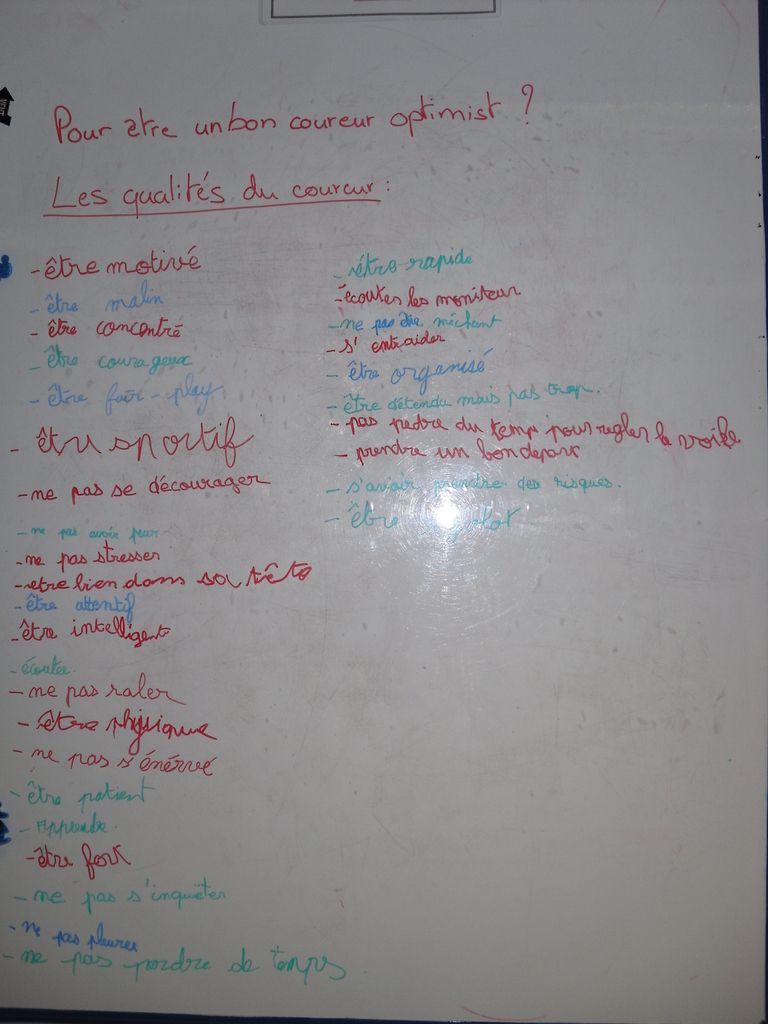 Pour etre un bon coureur optimist ?
Les qualités du coureur :
- être motivé
- être malin
- être concentré
- être courageux
- être fair-play
- être sportif
- ne pas se décourager
- ne pas avoir peur
- ne pas stresser
- etre bien dans sa tête
- être attentif
- être intelligent
- écouter
- ne pas raler
- être physique
- ne pas s'énérvé
- être patient
- Apprendre.
- être fort
- ne pas s'inquiéter
- ne pas pleurer
- ne pas perdre de temps
- être rapide
- écouter les moniteur
- ne pas être méchant
- s'entraider
- être organisé
- être détendu mais pas trop.
- pas pedre du temp pour regler la voile
- prendre un bon depart
- s'avoir prendre des risques.
- être